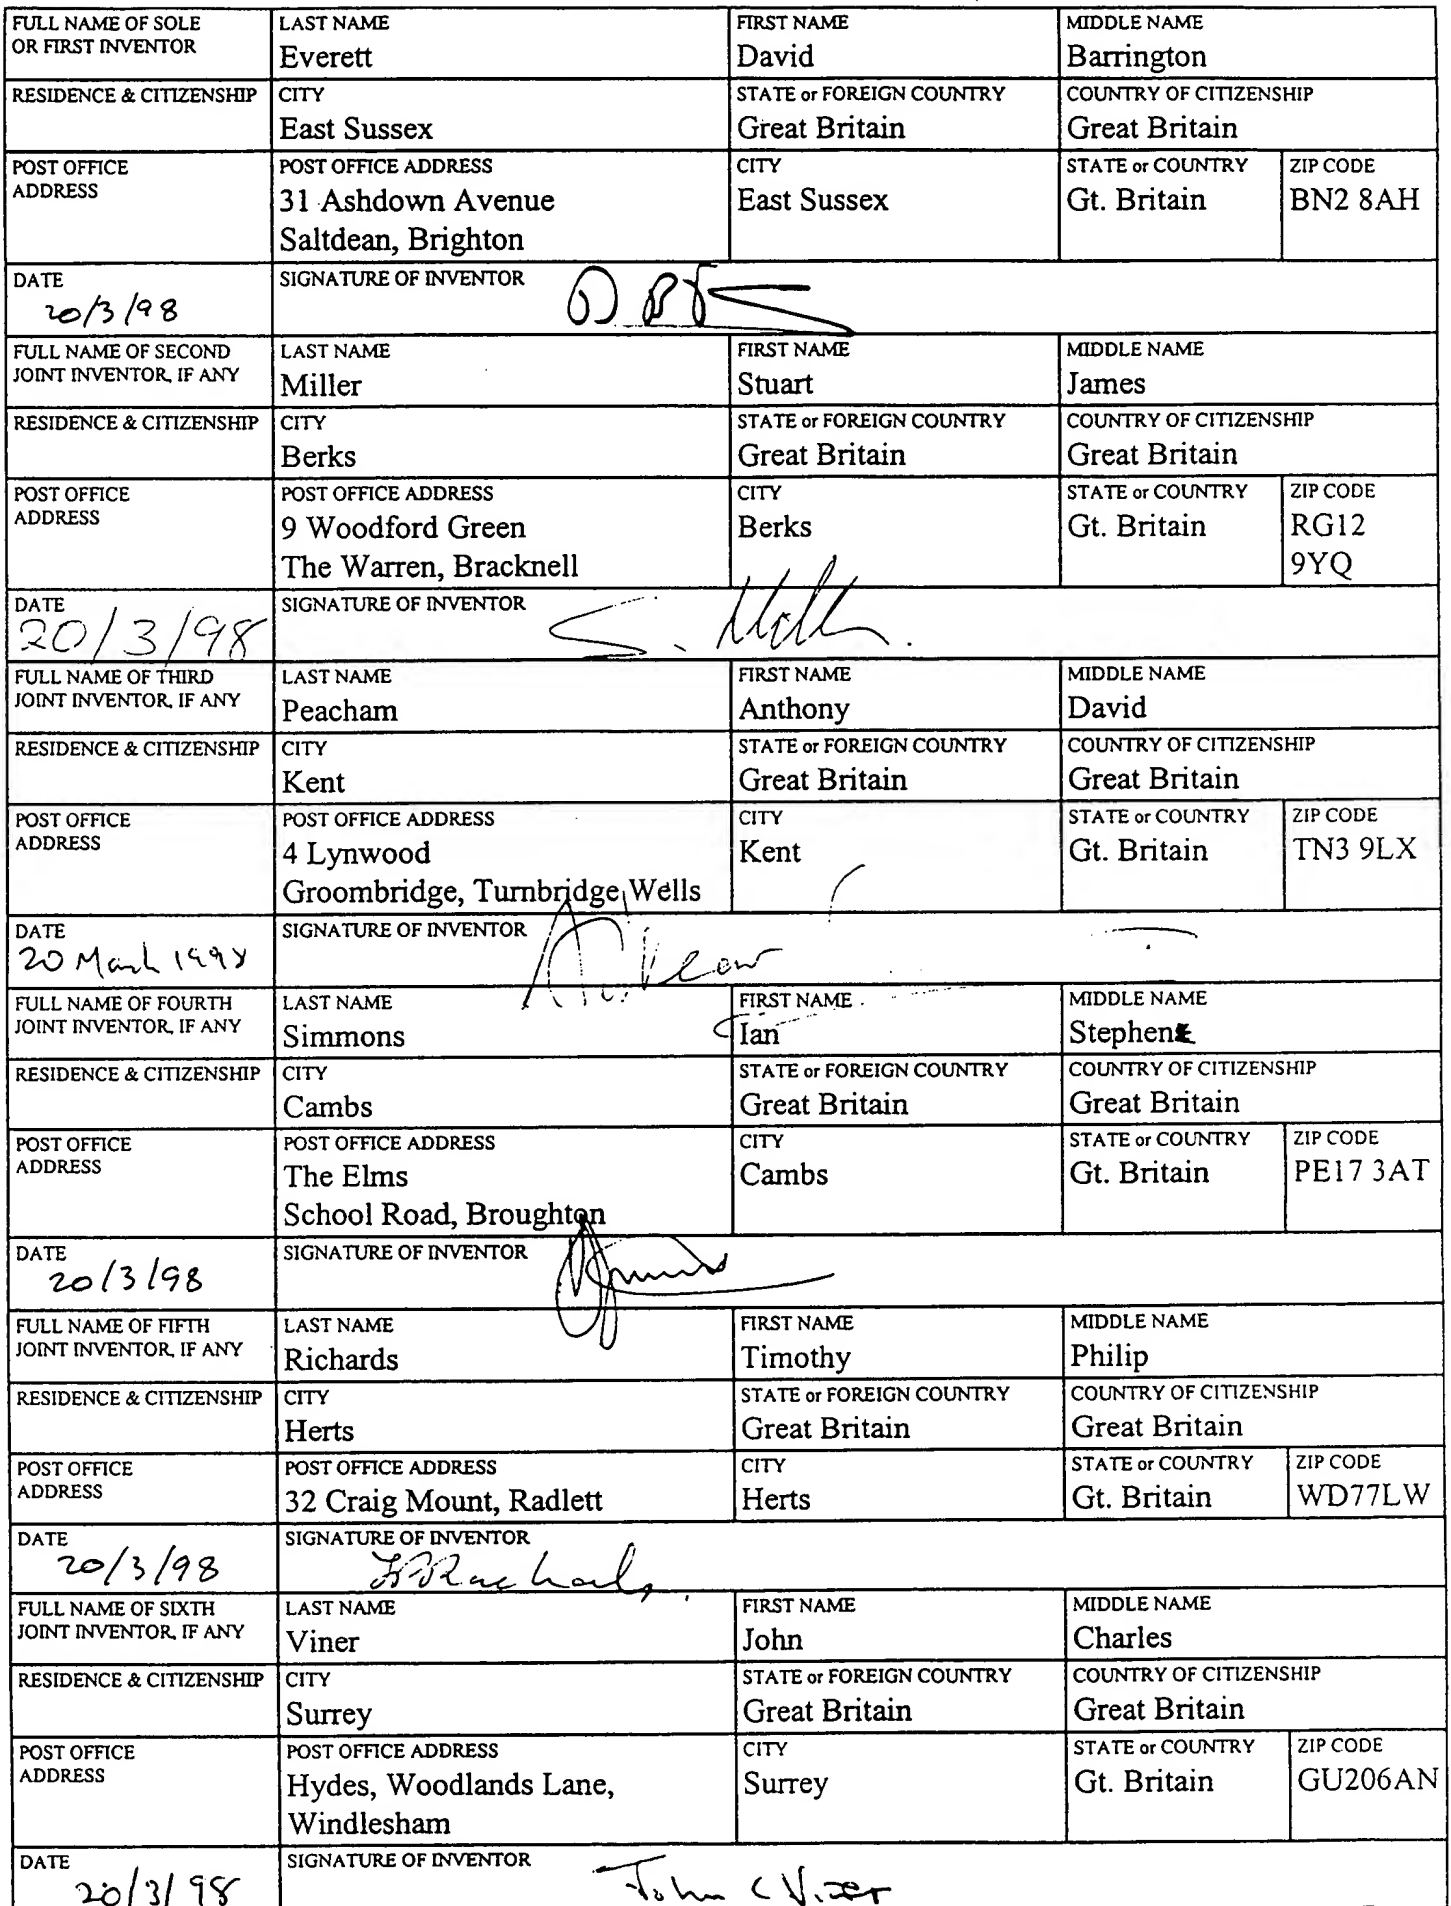 FULL NAME OF SOLE OR FIRST INVENTOR
LAST NAME
Everett
FIRST NAME
David
MIDDLE NAME
Barrington
RESIDENCE & CITIZENSHIP
CITY
East Sussex
STATE or FOREIGN COUNTRY
Great Britain
COUNTRY OF CITIZENSHIP
Great Britain
POST OFFICE
ADDRESS
POST OFFICE ADDRESS
31 Ashdown Avenue
Saltdean, Brighton
CITY
East Sussex
STATE or COUNTRY
Gt. Britain
ZIP CODE
BN2 8AH
DATE
20/3/98
SIGNATURE OF INVENTOR
FULL NAME OF SECOND
JOINT INVENTOR, IF ANY
LAST NAME
Miller
FIRST NAME
Stuart
MIDDLE NAME
James
RESIDENCE & CITIZENSHIP
CITY
Berks
STATE or FOREIGN COUNTRY
Great Britain
COUNTRY OF CITIZENSHIP
Great Britain
POST OFFICE
ADDRESS
POST OFFICE ADDRESS
9 Woodford Green
The Warren, Bracknell
CITY
Berks
STATE or COUNTRY
Gt. Britain
ZIP CODE
RG12
9YQ
DATE
20/3/98
SIGNATURE OF INVENTOR
FULL NAME OF THIRD
JOINT INVENTOR, IF ANY
LAST NAME
Peacham
FIRST NAME
Anthony
MIDDLE NAME
David
RESIDENCE & CITIZENSHIP
CITY
Kent
STATE or FOREIGN COUNTRY
Great Britain
COUNTRY OF CITIZENSHIP
Great Britain
POST OFFICE
ADDRESS
POST OFFICE ADDRESS
4 Lynwood
Groombridge, Turnbridge Wells
CITY
Kent
STATE or COUNTRY
Gt. Britain
ZIP CODE
TN3 9LX
DATE
20 March 1998
SIGNATURE OF INVENTOR
FULL NAME OF FOURTH
JOINT INVENTOR, IF ANY
LAST NAME
Simmons
FIRST NAME
Ian
MIDDLE NAME
Stephen
RESIDENCE & CITIZENSHIP
CITY
Cambs
STATE or FOREIGN COUNTRY
Great Britain
COUNTRY OF CITIZENSHIP
Great Britain
POST OFFICE
ADDRESS
POST OFFICE ADDRESS
The Elms
School Road, Broughton
CITY
Cambs
STATE or COUNTRY
Gt. Britain
ZIP CODE
PE17 3AT
DATE
20/3/98
SIGNATURE OF INVENTOR
FULL NAME OF FIFTH
JOINT INVENTOR, IF ANY
LAST NAME
Richards
FIRST NAME
Timothy
MIDDLE NAME
Philip
RESIDENCE & CITIZENSHIP
CITY
Herts
STATE or FOREIGN COUNTRY
Great Britain
COUNTRY OF CITIZENSHIP
Great Britain
POST OFFICE
ADDRESS
POST OFFICE ADDRESS
32 Craig Mount, Radlett
CITY
Herts
STATE or COUNTRY
Gt. Britain
ZIP CODE
WD77LW
DATE
20/3/98
SIGNATURE OF INVENTOR
FULL NAME OF SIXTH
JOINT INVENTOR, IF ANY
LAST NAME
Viner
FIRST NAME
John
MIDDLE NAME
Charles
RESIDENCE & CITIZENSHIP
CITY
Surrey
STATE or FOREIGN COUNTRY
Great Britain
COUNTRY OF CITIZENSHIP
Great Britain
POST OFFICE
ADDRESS
POST OFFICE ADDRESS
Hydes, Woodlands Lane,
Windlesham
CITY
Surrey
STATE or COUNTRY
Gt. Britain
ZIP CODE
GU206AN
DATE
20/3/98
SIGNATURE OF INVENTOR
John C Viner